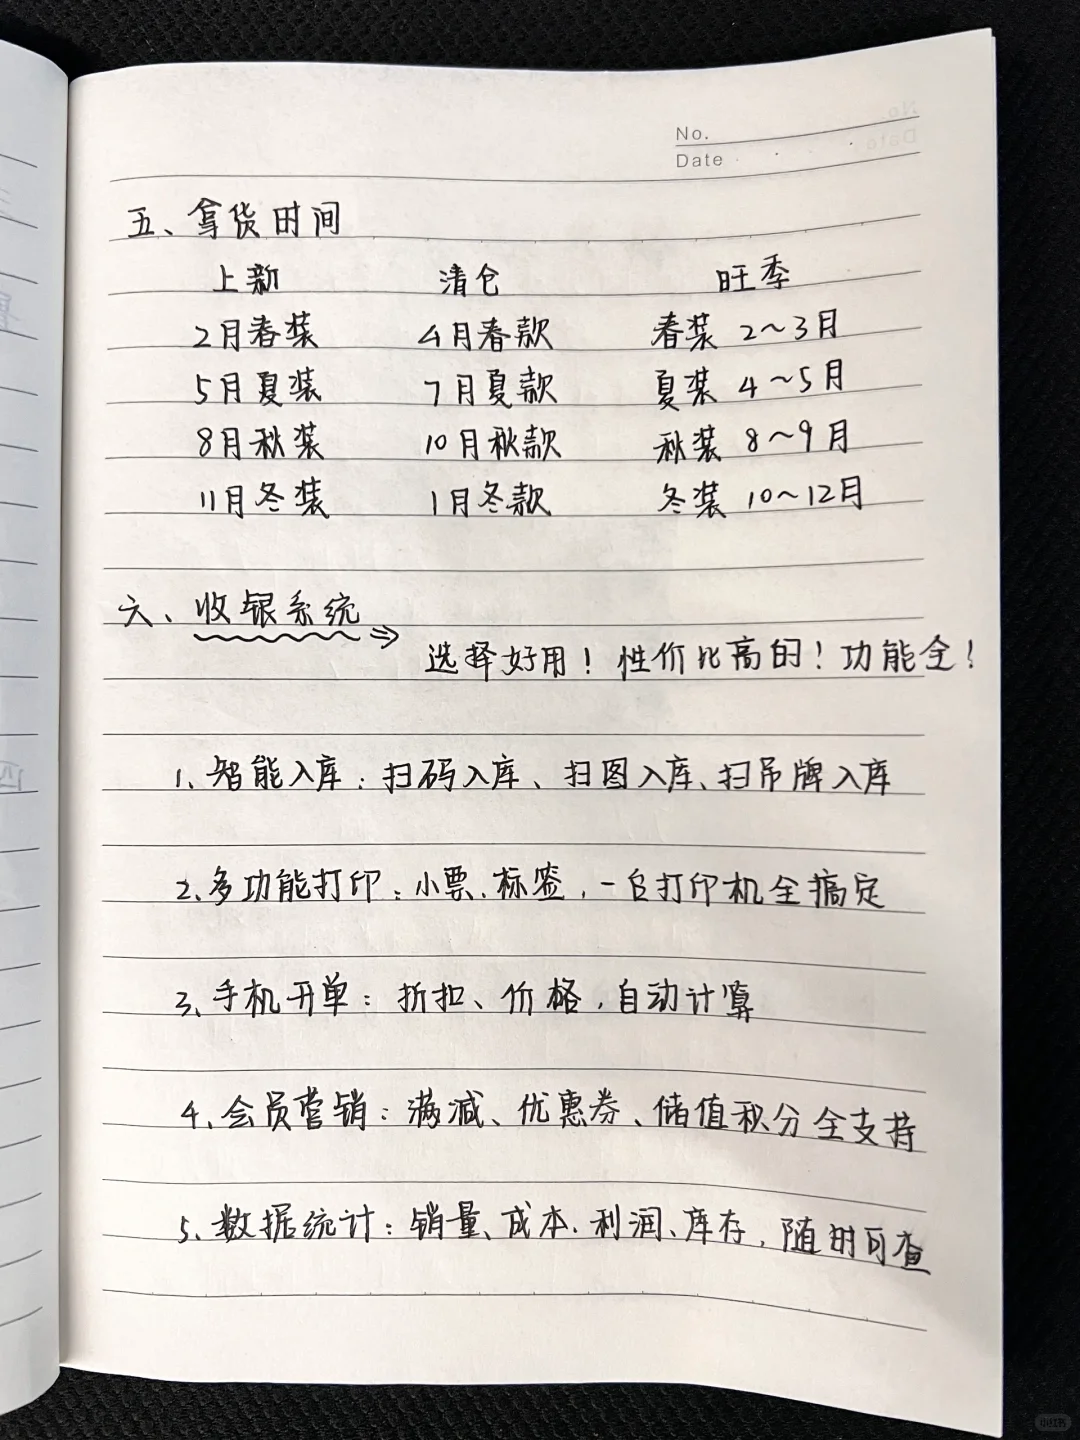 No.
Date
五、拿货时间
上新 清仓 旺季
2月春装 4月春款 春装 2~3月
5月夏装 7月夏款 夏装 4~5月
8月秋装 10月秋款 秋装 8~9月
11月冬装 1月冬款 冬装 10~12月
六、收银系统 ⇒
选择好用！性价比高的！功能全！
1、智能入库：扫码入库、扫图入库、扫吊牌入库
2、多功能打印：小票、标签，一台打印机全搞定
3、手机开单：折扣、价格，自动计算
4、会员营销：满减、优惠券、储值积分全支持
5、数据统计：销量、成本、利润、库存，随时可查
小红书